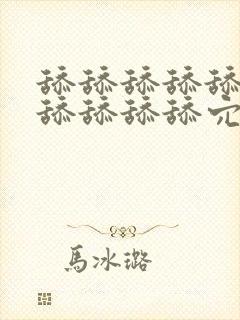 舔舔舔舔舔
舔舔舔舔
馬冰璐